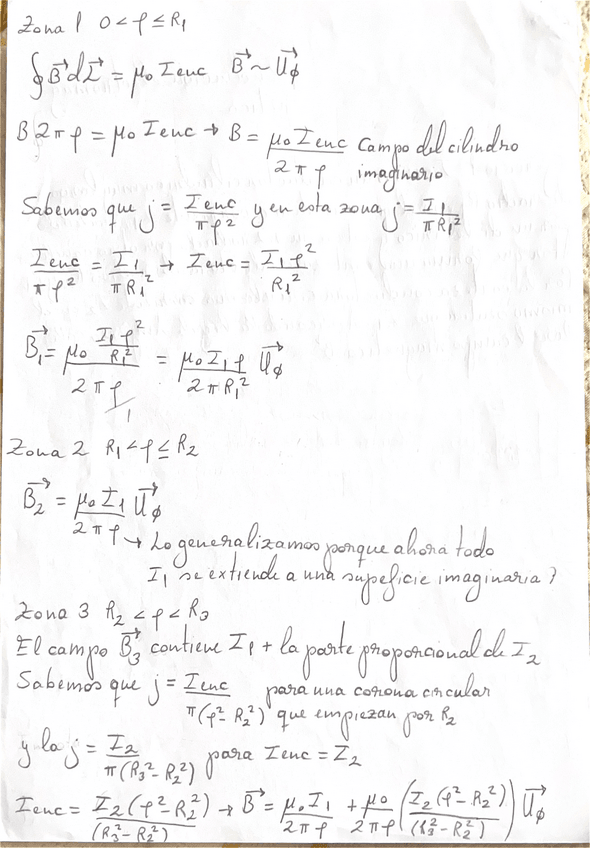 Zona 1 0 < ρ ≤ R₁
∮B⃗ dL⃗ = μ₀ Ienc B⃗ ~ U⃗ϕ
B 2πρ = μ₀ Ienc → B = μ₀ Ienc / 2πρ Campo del cilindro imaginario
Sabemos que j = Ienc / πρ² y en esta zona j = I₁ / πR₁²
Ienc / πρ² = I₁ / πR₁² → Ienc = I₁ρ² / R₁²
B⃗₁ = μ₀ (I₁ρ² / R₁²) / 2πρ = μ₀ I₁ρ / 2πR₁² U⃗ϕ
1
Zona 2 R₁ < ρ ≤ R₂
B⃗₂ = μ₀ I₁ / 2πρ U⃗ϕ
→ Lo generalizamos porque ahora todo
I₁ se extiende a una supeficie imaginaria?
Zona 3 R₂ < ρ < R₃
El campo B⃗₃ contiene I₁ + la parte proporcional de I₂
Sabemos que j = Ienc / π(ρ² - R₂²) para una corona circular que empiezan por R₂
y la j = I₂ / π(R₃² - R₂²) para Ienc = I₂
Ienc = I₂(ρ² - R₂²) / (R₃² - R₂²) → B⃗ = μ₀ I₁ / 2πρ + μ₀ / 2πρ (I₂(ρ² - R₂²) / (R₃² - R₂²)) U⃗ϕ